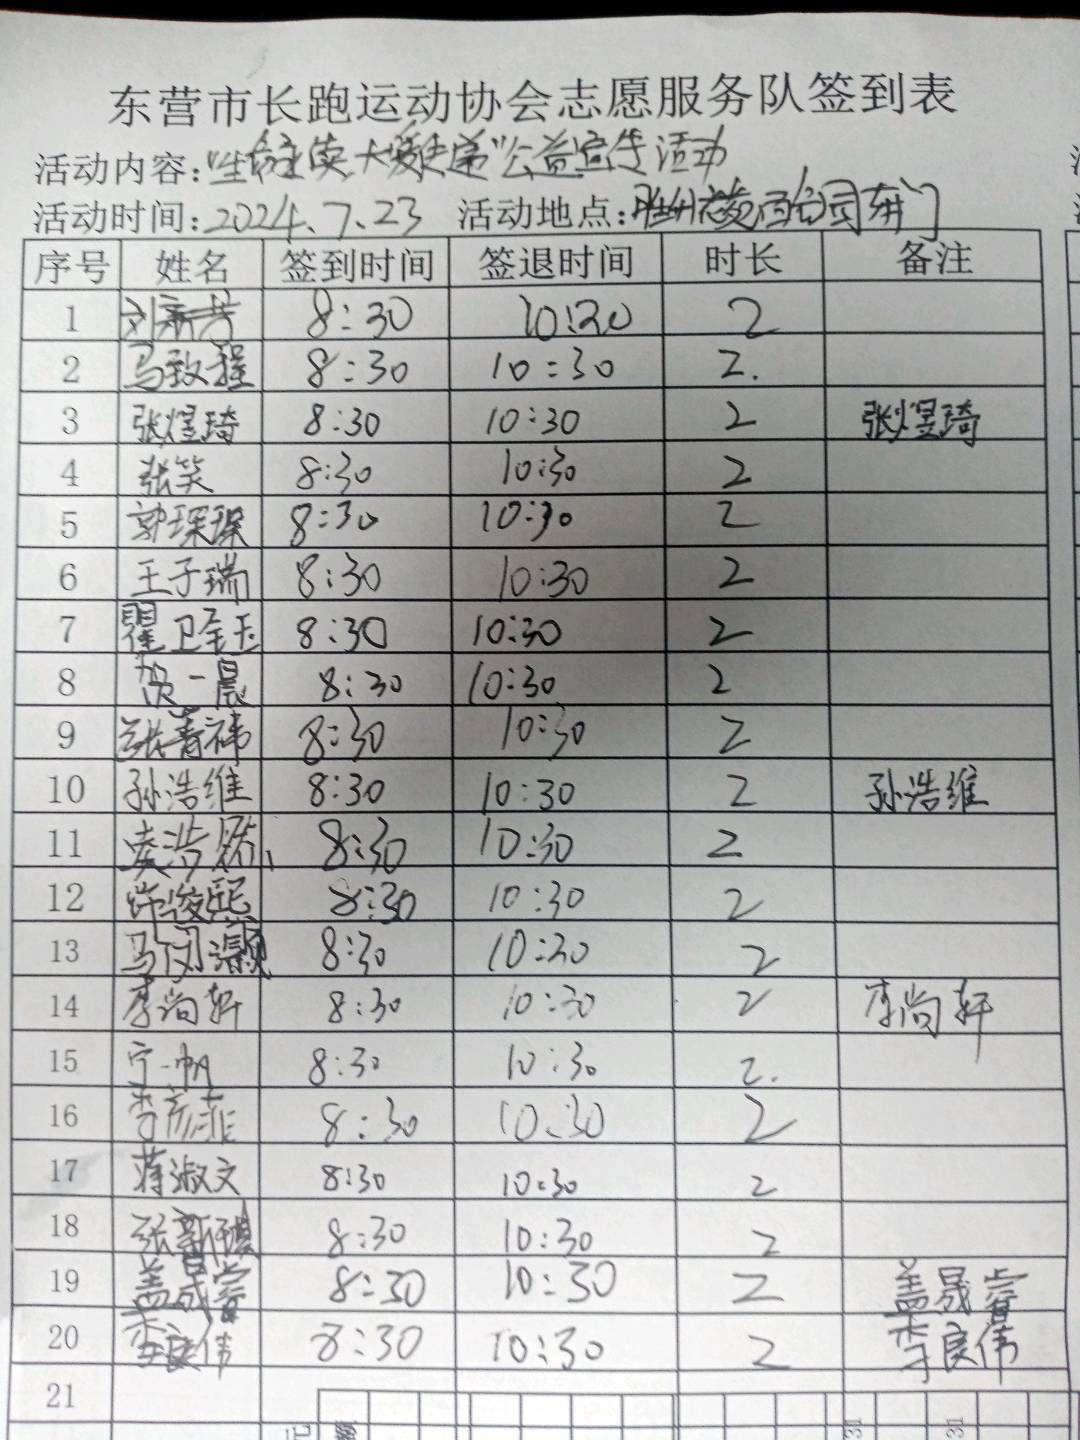 东营市长跑运动协会志愿服务队签到表
活动内容:"生命永续大爱传递"公益宣传活动
活动时间:2024.7.23 活动地点:百货公司东门
序号 姓名 签到时间 签退时间 时长 备注
1 8:30 10:30 2
2 马致程 8:30 10:30 2.
3 张煜琦 8:30 10:30 2 张煜琦
4 张笑 8:30 10:30 2
5 郭琛琛 8:30 10:30 2
6 王子瑞 8:30 10:30 2
7 瞿卫玉 8:30 10:30 2
8 贺一晨 8:30 10:30 2
9 张菁祎 8:30 10:30 2
10 孙浩维 8:30 10:30 2 孙浩维
11 凌浩然 8:30 10:30 2
12 许俊熙 8:30 10:30 2
13 马闵灏 8:30 10:30 2
14 李尚轩 8:30 10:30 2 李尚轩
15 宁一帆 8:30 10:30 2.
16 李彦菲 8:30 10:30 2
17 蒋淑文 8:30 10:30 2
18 张新 8:30 10:30 2
19 盖晟睿 8:30 10:30 2 盖晟睿
20 李良伟 8:30 10:30 2 李良伟
21
元 额 31 31